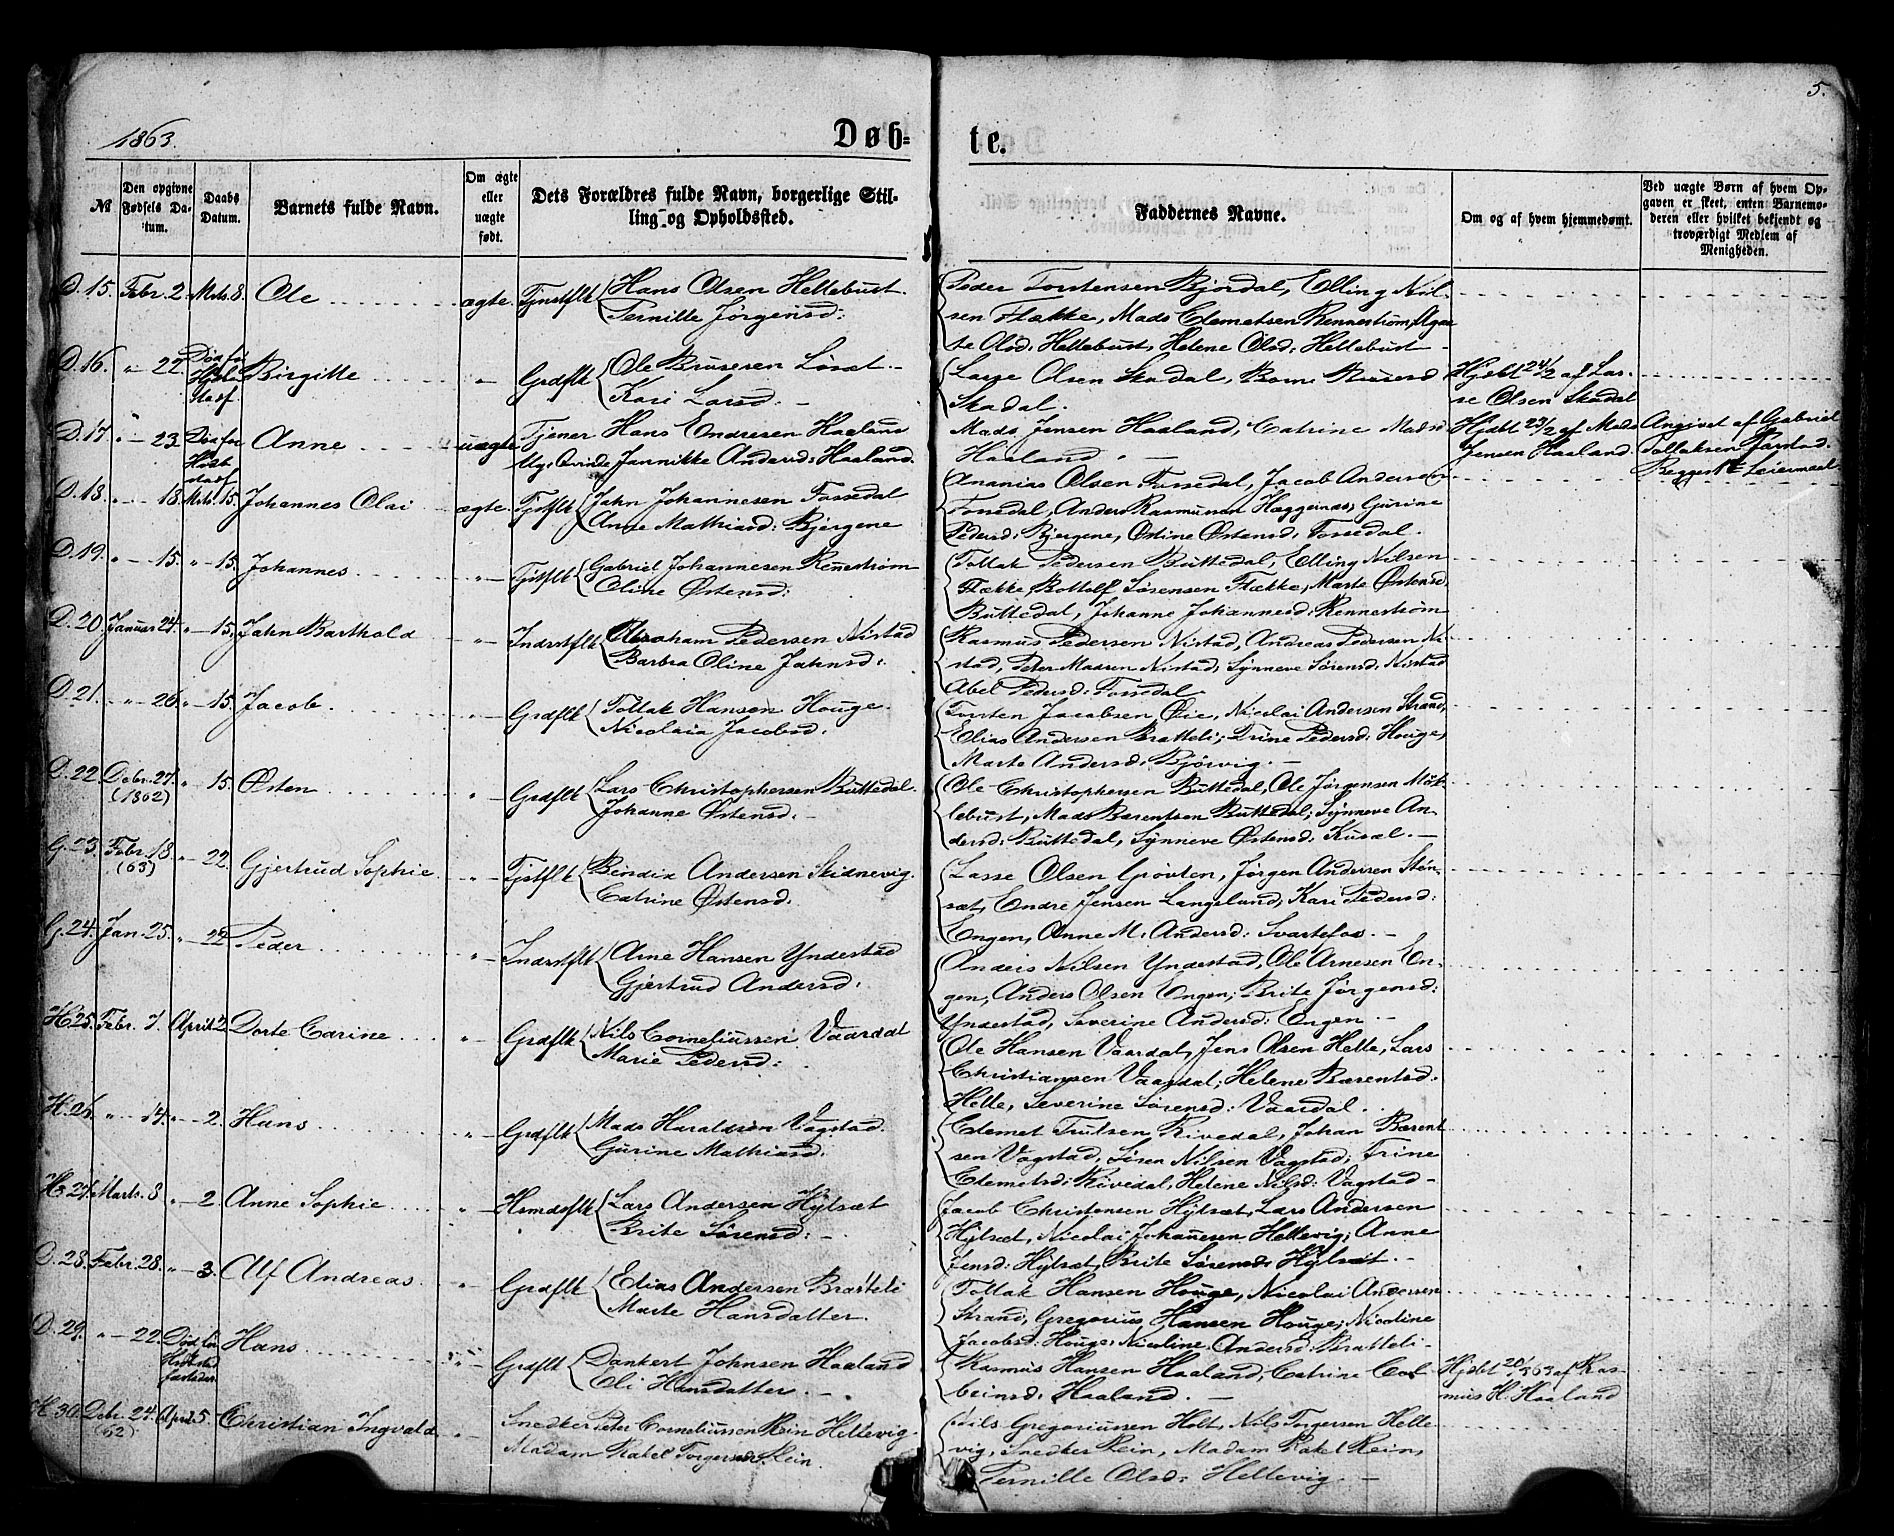 5.
1863.
Døb=
te.
№
Den opgivne Fødsels Datum.
Daabs Datum.
Barnets fulde Navn.
Om ægte eller uægte født.
Dets Forældres fulde Navn, borgerlige Stilling og Opholdssted.
Faddernes Navne.
Om og af hvem hjemmedøbt.
Ved uægte Børn af hvem Opgaven er skeet, enten Barnemoderen eller hvilket bekjendt og troværdigt Medlem af Menigheden.
D. 15. Febr. 2. Mrts. 8. Ole ægte. Tjnstflk Hans Olsen Hellebust.
Pernille Jørgensd:
Peder Torstensen Bjordal, Elling Nil-
sen Flække, Mads Clemetsen Rennestrøm,
Olsd: Hellebust, Helene Olsd: Hellebust
D. 16. " 22. Død før Birgitte " Grdflk Ole Brusesen Løset.
Kari Larsd.
Lasse Olsen Skadal, Brusesd
Skadal.
Hjdbt 24/2 af Las-
se Olsen Skadal
D. 17. " 23. Død før Anne uægte Tjener Hans Endresen Haaland
Ug: Qvinde Jannikke Andersd: Haaland.
Mads Jensen Haaland, Catrine Madsd
Haaland.
Hjdbt 23/2 af Mads
Jensen Haaland.
Angivet af Gabriel
Tollaksen Farstad.
Begges 1ste Leiermaal
D. 18. " 18. Mrts. 15. Johannes Olai ægte. Tjstflk Jahn Johannesen Fossedal
Anne Mathiasd: Bjergene
Ananias Olsen Fossedal, Jacob Anderse
Fossedal, Anders Rasmussen Heggenæs, Gurine
Pedersd: Bjergene, Østine Østensd: Fossedal.
D. 19. " 15. " 15. Johannes " Tjstflk Gabriel Johannesen Rennestrøm
Oline Østensd:
Tollak Pedersen Buttedal, Elling Nilsen
Flække, Bottolf Sørensen Flække, Marte Østensd.
Buttedal, Johanne Johannesd: Rennestrøm
D. 20. Januar 24. " 15. Jahn Barthold " Indrstflk Abraham Pedersen Nistad
Barbra Oline Jahnsd:
Rasmus Pedersen Nistad, Andreas Pedersen Ni-
stad, Peter Madsen Nistad; Synneve Sørensd: Nistad
Abel Pedersd: Fossedal
D. 21. " 26. " 15. Jacob " Grdflk Tollak Hansen Houge.
Nicolaia Jacobsd:
Torsten Jacobsen Øie, Nicolai Andersen Strand,
Elias Andersen Bratteli; Trine Pedersd: Houge,
Marte Andersd: Bjørvig.
D. 22. Debr. 27. (1862) " 15. Østen " Grdflk Lars Christophersen Buttedal.
Johanne Østensd.
Ole Christophersen Buttedal, Ole Jørgensen Møk-
lebust, Mads Barentsen Buttedal; Synneve An-
dersd: Buttedal, Synneve Østensd:
G. 23. Febr. 18. (63) " 22. Gjertrud Sophie " Tjstflk Bendix Andersen Skidnevig.
Catrine Østensd.
Lasse Olsen Grøvten, Jørgen Andersen Sten-
sæt, Endre Jensen Langelund; Kari Pedersd:
Engen, Anne M. Andersd: Svartefos.
G. 24. Jan. 25. " 22 Peder " Indrstflk Arne Hansen Yndestad
Gjertrud Andersd.
Anders Nilsen Yndestad, Ole Arnesen En-
gen, Anders Olsen Engen; Brite Jørgensd:
Yndestad, Severine Andersd: Engen
H. 25. Febr. 7. April 2. Dorte Carine " Grdflk Nils Corneliussen Vaardal
Marie Pedersd:
Ole Hansen Vaardal, Jens Olsen Helle, Lars
Christiansen Vaardal; Helene Barentsd:
Helle, Severine Sørensd: Vaardal.
H. 26. " 14. " 2. Hans " Grdflk Mads Haraldsen Vagstad.
Gurine Mathiasd.
Clemet Trulsen Rivedal, Johan Barent
sen Vagstad, Søren Nilsen Vagstad; Trine
Clemetsd: Rivedal, Helene Nilsd: Vagstad
H. 27. Marts. 8 " 2. Anne Sophie " Hsmdsflk Lars Andersen Hylsæt
Brite Sørensd:
Jacob Christensen Hylsæt, Lars Andersen
Hylsæt, Nicolai Johannesen Hellevig; Anne
Jensd: Hylsæt, Brite Sørensd: Hylsæt.
D. 28. Febr. 28. " 3. Alf Andreas. " Grdflk Elias Andersen Bratteli
Marte Hansdatter.
Tollak Hansen Houge, Nicolai Andersen
Strand, Gregorius Hansen Houge; Nicoline
Jacobsd: Houge, Nicoline Andersd: Bratteli
D. 29. " 22. Død før Hans " Grdflk Dankert Johnsen Haaland
Eli Hansdatter.
Rasmus Hansen Haaland, Catrine Col-
beinsd: Haaland.
Hjdbt 63 af Ras-
mus H. Haaland
H. 30. Debr. 24. (62) April 5. Christian Ingvald " Snedker Peter Corneliussen Rein Hellevig.
Madam Rakel Torgersd. Rein.
Nils Gregoriussen Holt, Nils Torgersen Helle-
vig, Snedker Rein, Madam Rakel Rein,
Pernille Olsd: Hellevig.